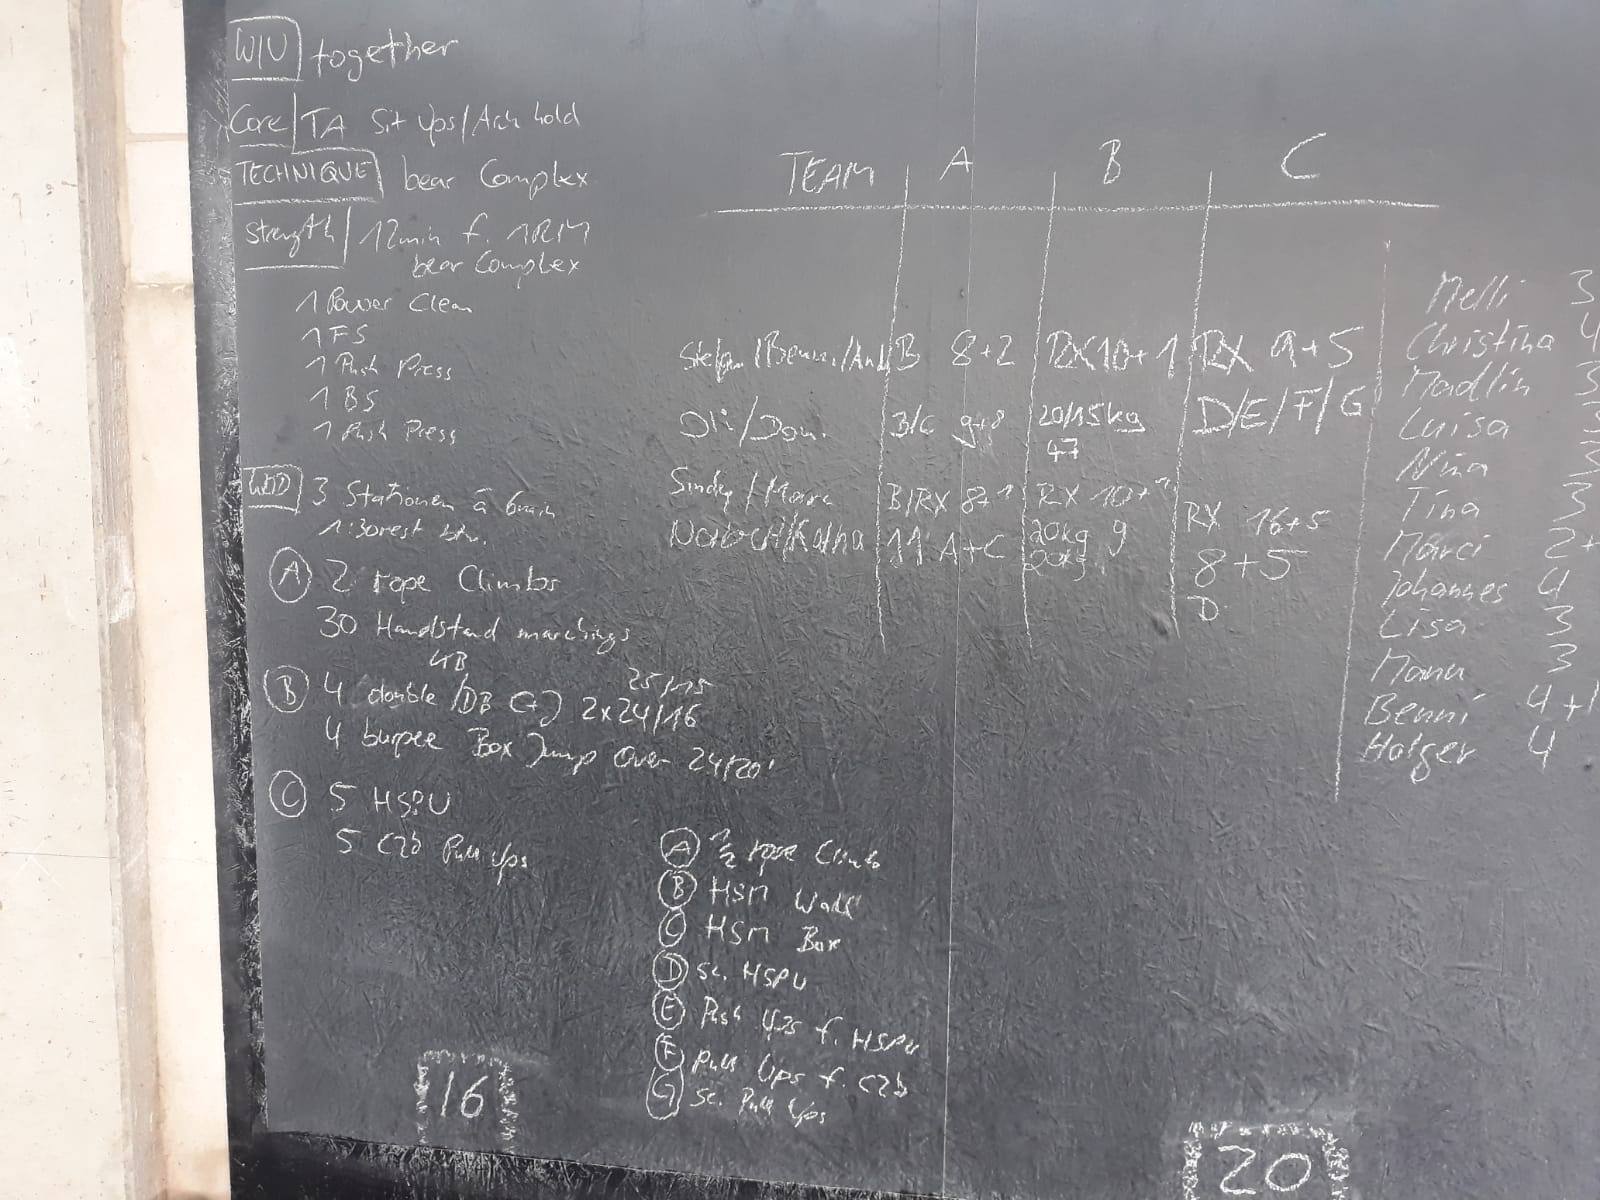 W/U together
Core TA Sit Ups/Arch hold
TECHNIQUE bear Complex
Strength 12min f. 1RM
bear Complex
1 Power Clean
1 FS
1 Push Press
1 BS
1 Push Press
WOD 3 Stationen à 6min
1:30rest btw.
A 2 rope Climbs
30 Handstand marchings
KB 25/15
B 4 double /DB C+J 2x24/16
4 burpee Box Jump Over 24/20'
C 5 HSPU
5 C2b Pull Ups
16
TEAM A B C
Stefan/Benni/And B 8+2 RX 10+1 RX 9+5
Oli/Dom. B/C 9+8 20/15kg D/E/F/G
47
Sindy/Marc B/RX 8+1 RX 10+ RX 16+5
11 A+C 20kg 9 8+5
20kg D
A 1/2 rope Climb
B HSM Wall
C HSM Box
D Sc. HSPU
E Push Ups f. HSPU
F Pull Ups f. C2b
G Sc. Pull Ups
Melli 3
Christina 4
Madlin 3
Luisa 3
Nina 3
Tina 3
Marci 2+
Johannes 4
Lisa 3
Manu 3
Benni 4+1
Holger 4
20